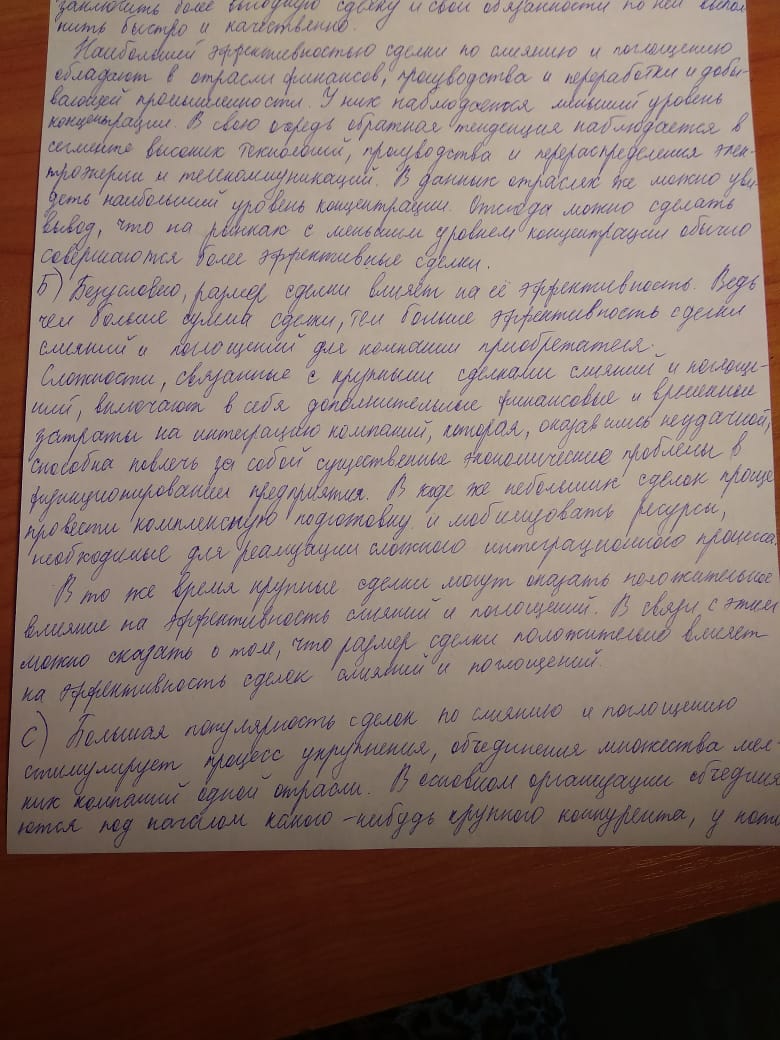 заключить более выгодную сделку и свои обязанности по ней выпол-
нить быстро и качественно.
Наибольшей эффективностью сделки по слиянию и поглощению
обладают в отрасли финансов, производства и переработки и добы-
вающей промышленности. У них наблюдается меньший уровень
концентрации. В свою очередь обратная тенденция наблюдается в
сегменте высоких технологий, производства и перераспределения элек-
троэнергии и телекоммуникаций. В данных отраслях же можно уви-
деть наибольший уровень концентрации. Отсюда можно сделать
вывод, что на рынках с меньшим уровнем концентрации обычно
совершаются более эффективные сделки.
Б) Безусловно, размер сделки влияет на её эффективность. Ведь
чем больше сумма сделки, тем больше эффективность сделки
слияний и поглощений для компании приобретателя.
Сложности, связанные с крупными сделками слияний и поглоще-
ний, включают в себя дополнительные финансовые и временные
затраты на интеграцию компаний, которая, оказавшись неудачной,
способна повлечь за собой существенные экономические проблемы в
функционировании предприятия. В ходе же небольших сделок проще
провести комплексную подготовку и мобилизовать ресурсы,
необходимые для реализации сложного интеграционного процесса.
В то же время крупные сделки могут оказать положительное
влияние на эффективность слияний и поглощений. В связи с этим
можно сказать о том, что размер сделки положительно влияет
на эффективность сделок слияний и поглощений.
С) Большая популярность сделок по слиянию и поглощению
стимулирует процесс укрупнения, объединения множества мел-
ких компаний одной отрасли. В основном организации объединя
ются под началом какого-нибудь крупного конкурента, у кото